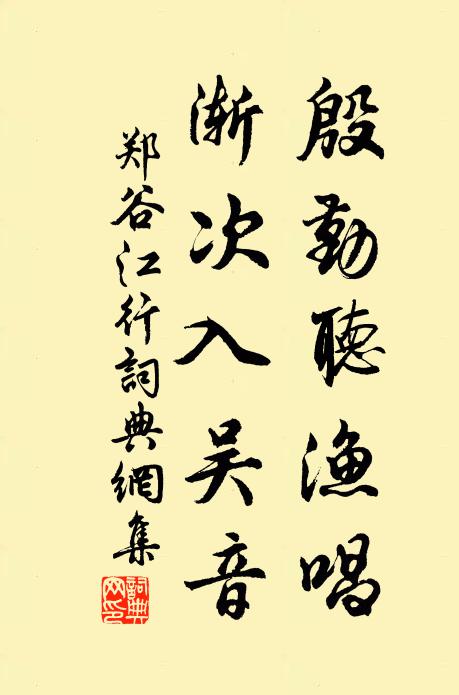 殷勤聽漁唱
漸次入吴音
郑谷江行詞典網集
詞典网印